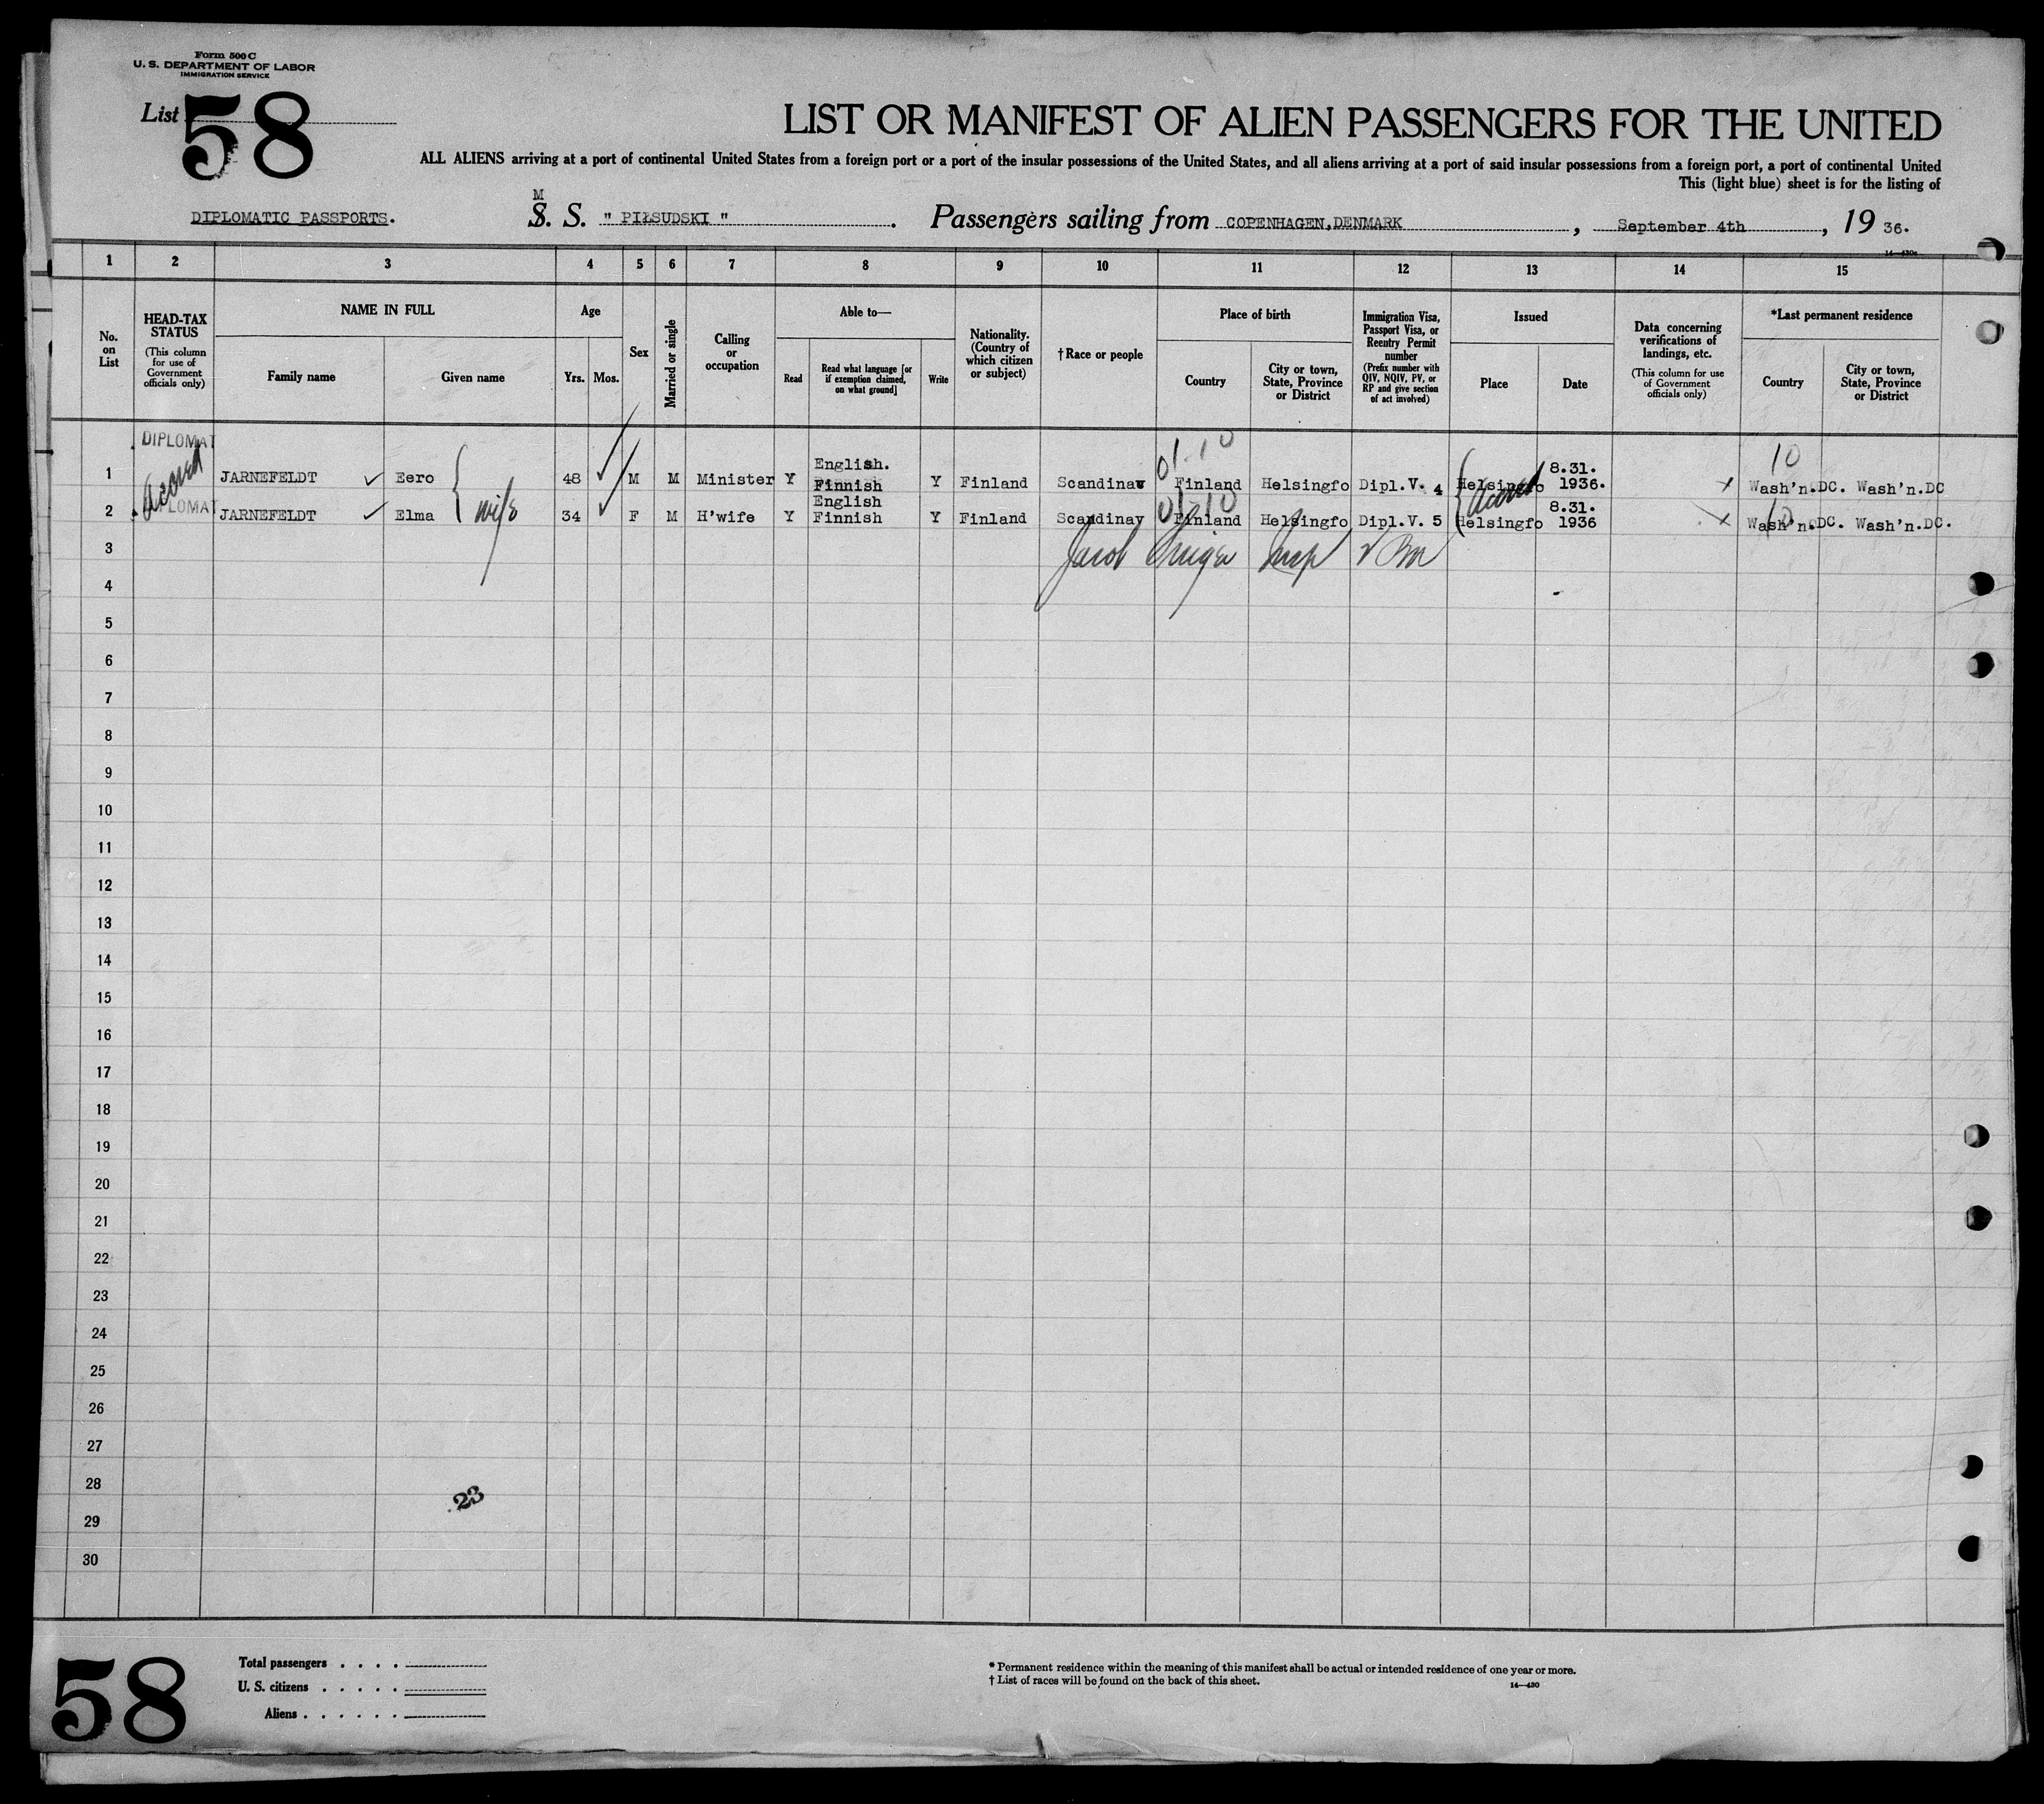 Form 500 C
U. S. DEPARTMENT OF LABOR
IMMIGRATION SERVICE
List 58
LIST OR MANIFEST OF ALIEN PASSENGERS FOR THE UNITED
ALL ALIENS arriving at a port of continental United States from a foreign port or a port of the insular possessions of the United States, and all aliens arriving at a port of said insular possessions from a foreign port, a port of continental United
This (light blue) sheet is for the listing of
DIPLOMATIC PASSPORTS. M S. S. " PIŁSUDSKI ". Passengers sailing from COPENHAGEN,DENMARK, September 4th, 19 36.
14—430
1 2 3 4 5 6 7 8 9 10 11 12 13 14 15
No. on List
HEAD-TAX STATUS
(This column for use of Government officials only)
NAME IN FULL
Family name
Given name
Age
Yrs.
Mos.
Sex
Married or single
Calling or occupation
Able to—
Read
Read what language [or if exemption claimed, on what ground]
Write
Nationality. (Country of which citizen or subject)
† Race or people
Place of birth
Country
City or town, State, Province or District
Immigration Visa, Passport Visa, or Reentry Permit number
(Prefix number with QIV, NQIV, PV, or RP and give section of act involved)
Issued
Place
Date
Data concerning verifications of landings, etc.
(This column for use of Government officials only)
*Last permanent residence
Country
City or town, State, Province or District
DIPLOMAT 01-10 10
1 JARNEFELDT Eero 48 M M Minister Y English. Finnish Y Finland Scandinav Finland Helsingfo Dipl.V. 4 Helsingfo 8.31. 1936. x Wash'n.DC. Wash'n.DC
LOMAT wife 01-10 10
2 JARNEFELDT Elma 34 F M H'wife Y English Finnish Y Finland Scandinav Finland Helsingfo Dipl.V. 5 Helsingfo 8.31. 1936 x Wash'n.DC. Wash'n.DC.
3 Jacob Insp
4
5
6
7
8
9
10
11
12
13
14
15
16
17
18
19
20
21
22
23
24
25
26
27
28
23
29
30
58
Total passengers . . . .
U. S. citizens . . . . .
Aliens . . . . . .
* Permanent residence within the meaning of this manifest shall be actual or intended residence of one year or more.
† List of races will be found on the back of this sheet.
14—430